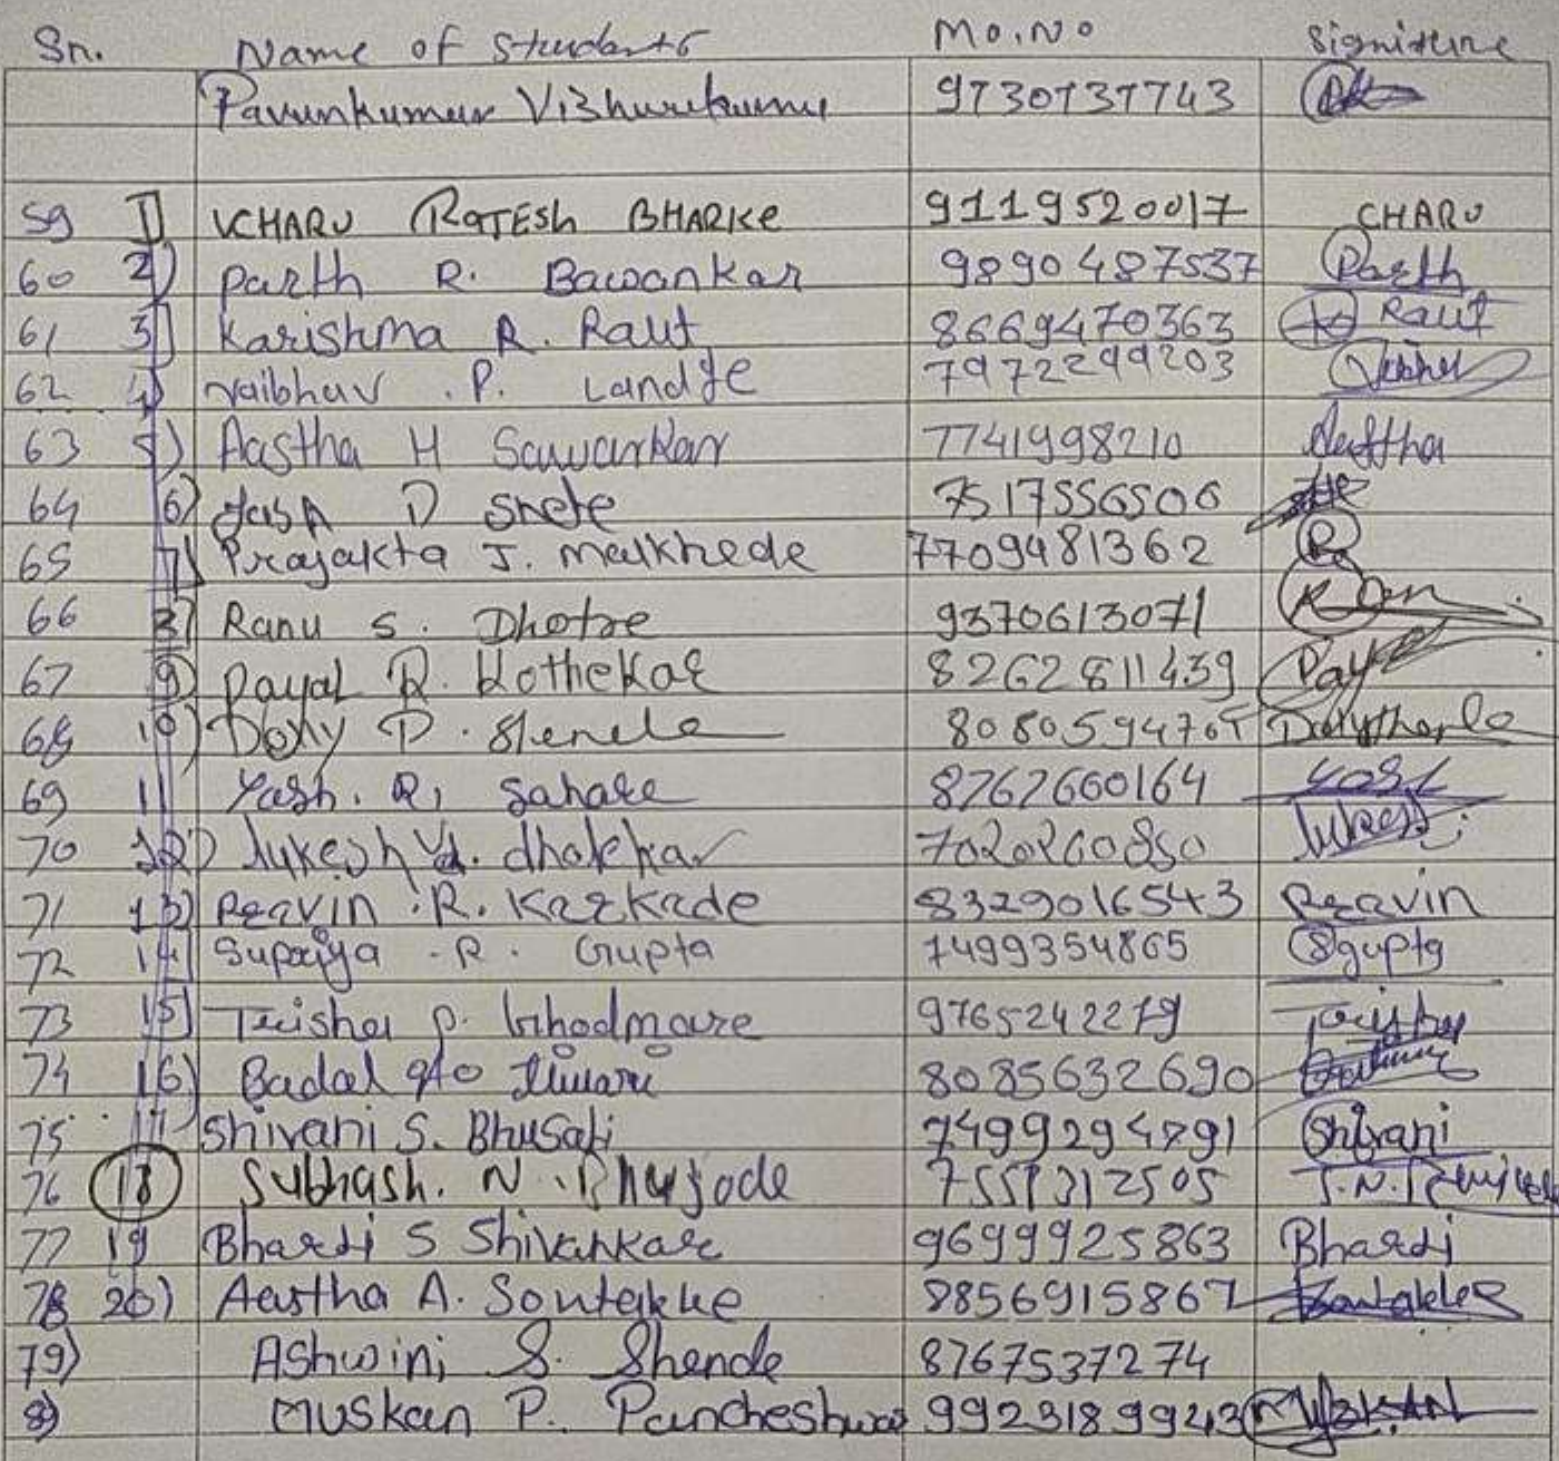 Sn. Name of Students Mo.No Signiture
Pavunkumar 9730737743
59 1] CHARU RaTESh BHARKe 9119520017 CHARU
60 2) Parth R. Bawankar 9890487537 Parth
61 3] Karishma R. Raut 8669470363 Raut
62 4) Vaibhav .P. Landge 7972299203
63 5) Aastha H Sawarkar 7741998210 Aastha
64 6) D 7517556506
65 7) Prajakta J. Malkhede 7709481362 P
66 8) Ranu S. Dhotre 9370613071 Ran
67 9) Payal R. Kothekar 8262811439 Payal
68 10) Dolly D. 808059470
69 11 Yash. R. Sahare 8767660164 Yash
70 12) lukesh dhalekar 7020260850 lukesh
71 13) Pravin .R. Karkade 8329016543 Pravin
72 14] Supriya -R. Gupta 7499354865 Sgupta
73 15] Trisha P. Ghodmare 9765242279 Trisha
74 16) Badal Tiwari 8085632690
75 17 Shivani S. Bhusari 7499294791 Shivani
76 18 Subhash. N.
77 19 Bharti S Shivankar 9699925863 Bharti
78 20) Aastha A. Sontakke 8856915867 Sontakke
79) Ashwini S. Shende 8767537274
8) Muskan P. Pancheshwar 9923189943 MUSKAN